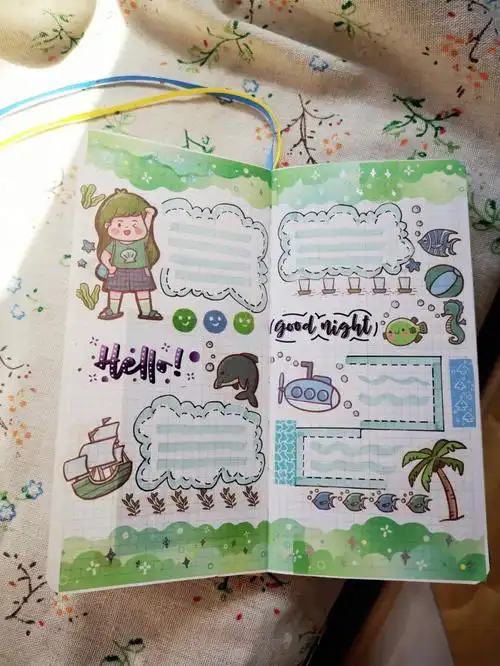 Hello!
(good night)